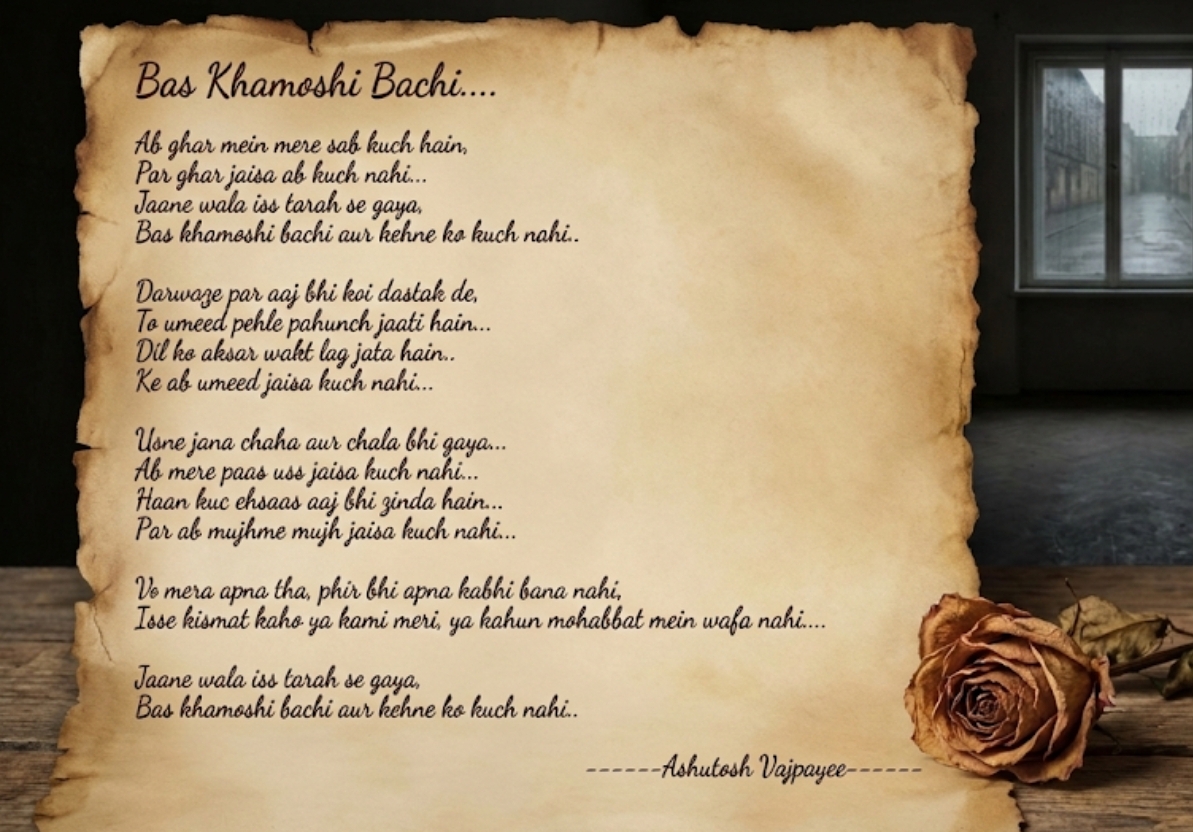 Bas Khamoshi Bachi....
Ab ghar mein mere sab kuch hain,
Par ghar jaisa ab kuch nahi...
Jaane wala iss tarah se gaya,
Bas khamoshi bachi aur kehne ko kuch nahi..
Darwaze par aaj bhi koi dastak de,
To umeed pehle pahunch jaati hain...
Dil ko aksar wakt lag jata hain..
Ke ab umeed jaisa kuch nahi...
Usne jana chaha aur chala bhi gaya...
Ab mere paas uss jaisa kuch nahi...
Haan kuc ehsaas aaj bhi zinda hain...
Par ab mujhme mujh jaisa kuch nahi...
Vo mera apna tha, phir bhi apna kabhi bana nahi,
Isse kismat kaho ya kami meri, ya kahun mohabbat mein wafa nahi....
Jaane wala iss tarah se gaya,
Bas khamoshi bachi aur kehne ko kuch nahi..
------Ashutosh Vajpayee------